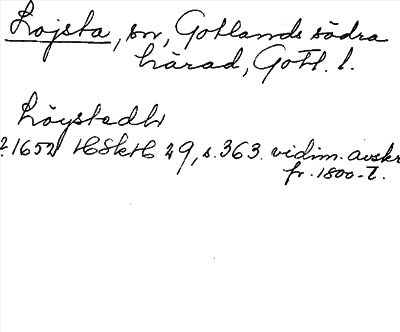 Lojsta, sn, Gotlands södra
härad, Gotl. l.
Löystadh
? 1652 HSkH 29, s. 363. vidim. avskr
fr. 1800-t.